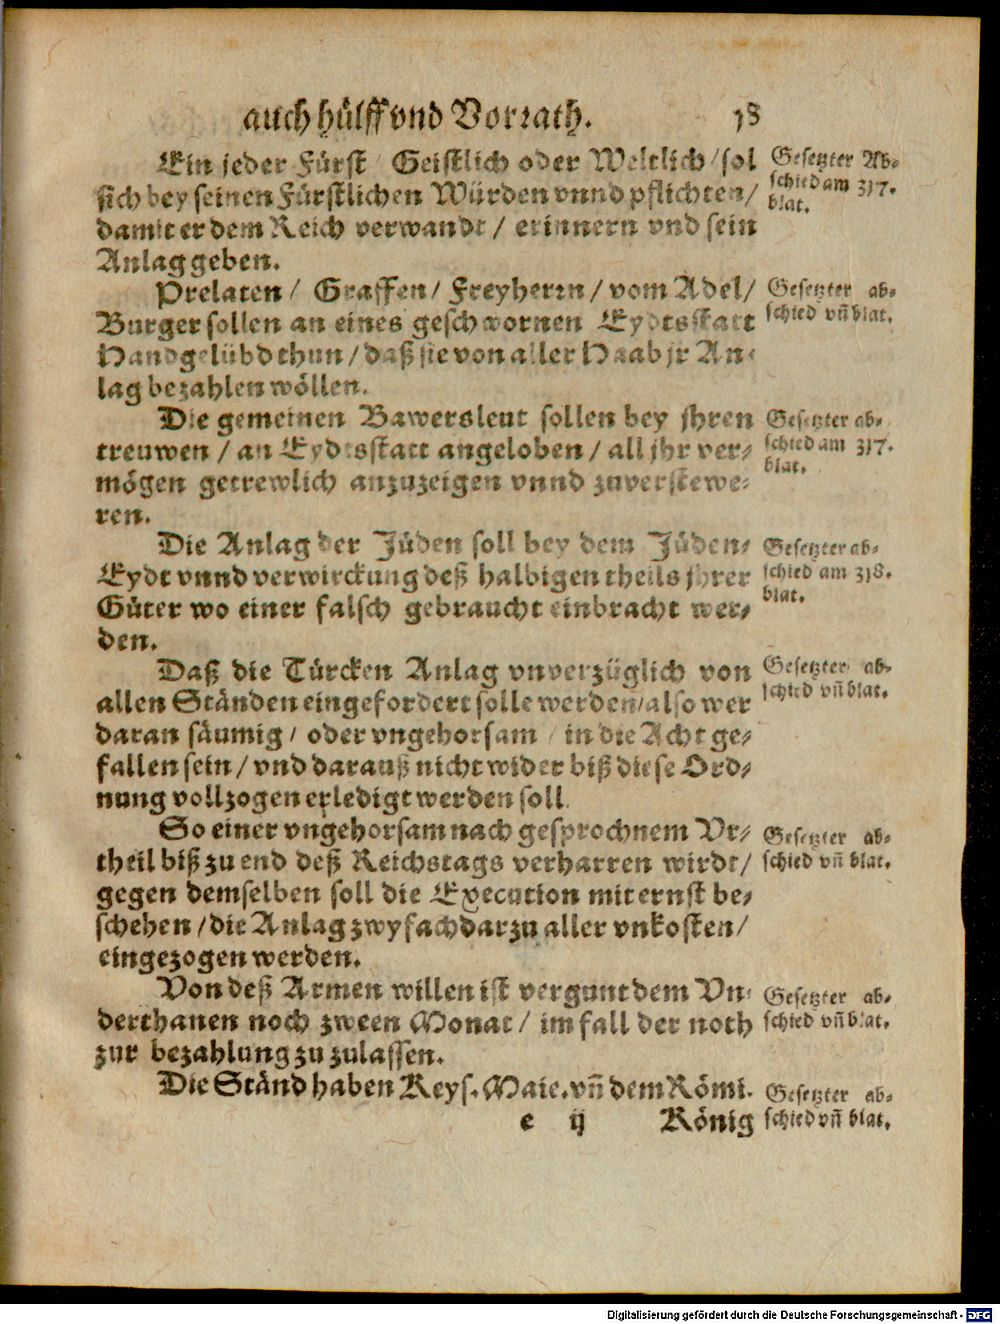 auch hülff vnd Vorrath. 18
Ein jeder Fürst / Geistlich oder Weltlich / sol
sich bey seinen Fürstlichen Würden vnnd pflichten /
damit er dem Reich verwandt / erinnern vnd sein
Anlag geben.
Gesetzter Ab-
schied am 317.
blat.
Prelaten / Graffen / Freyherrn / vom Adel /
Burger sollen an eines geschwornen Eydtsstatt
Handgelübd thun / daß sie von aller Haab jr An-
lag bezahlen wöllen.
Gesetzter ab-
schied vn̄ blat.
Die gemeinen Bawersleut sollen bey jhren
treuwen / an Eydtsstatt angeloben / all jhr ver-
mögen getrewlich anzuzeigen vnnd zuverstewe-
ren.
Gesetzter ab-
schied am 317.
blat.
Die Anlag der Jüden soll bey dem Jüden-
Eydt vnnd verwirckung deß halbigen theils jhrer
Güter wo einer falsch gebraucht einbracht wer-
den.
Gesetzter ab-
schied am 318.
blat.
Daß die Türcken Anlag vnverzüglich von
allen Ständen eingefordert solle werden / also wer
daran säumig / oder vngehorsam / in die Acht ge-
fallen sein / vnd darauß nicht wider biß diese Ord-
nung vollzogen erledigt werden soll.
Gesetzter ab-
schied vn̄ blat.
So einer vngehorsam nach gesprochnem Vr-
theil biß zu end deß Reichstags verharren wirdt /
gegen demselben soll die Execution mit ernst be-
schehen / die Anlag zwyfach darzu aller vnkosten /
eingezogen werden.
Gesetzter ab-
schied vn̄ blat.
Von deß Armen willen ist vergunt dem Vn-
derthanen noch zween Monat / im fall der noth
zur bezahlung zu zulassen.
Gesetzter ab-
schied vn̄ blat.
Die Ständ haben Keys. Maie. vn̄ dem Römi.
Gesetzter ab-
schied vn̄ blat.
e ij König
Digitalisierung gefördert durch die Deutsche Forschungsgemeinschaft - DFG